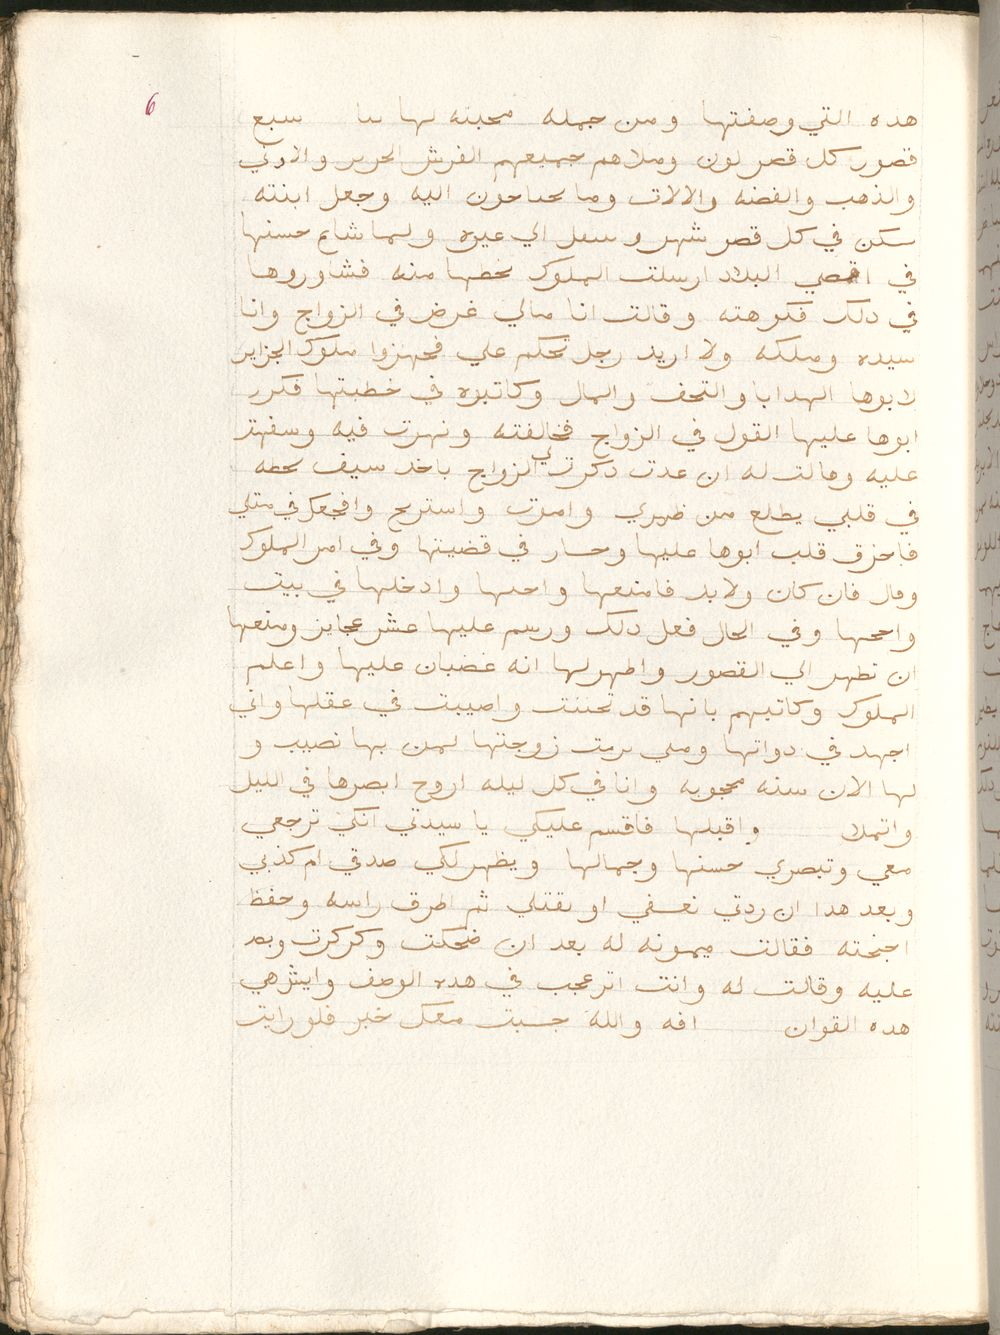 6
هده التي وصفتها ومن جمله محبته لها بنا سبع
قصور كل قصر لون وملاهم جميعهم الفرش الحرير والاوني
والذهب والفضه والالات وما يحتاجون اليه وجعل ابنته
تسكن في كل قصر شهر وتنتقل الي غيره ولما شاع حسنها
في اقصي البلاد ارسلت الملوك تخطبها منه فشاوروها
في دلك فكرهته وقالت انا مالي غرض في الزواج وانا
سيده وملكه ولا اريد رجل تحكم علي فجهزوا ملوك الجزاير
لابوها الهدايا والتحف والمال وكاتبوه في خطبتها فكرر
ابوها عليها القول في الزواج فخالفته ونهرت فيه وسفهت
عليه وقالت له ان عدت ذكرت لي الزواج باخد سيف نحطه
في قلبي يطلع من ظهري واموت واستريح وافجعك في متلي
فاحترق قلب ابوها عليها وحار في قضيتها وفي امر الملوك
وقال فان كان ولابد فامنعها واحبها وادخلها في بيت
واحجبها وفي الحال فعل دلك ورسم عليها عشر عجايز ومنعها
ان تظهر الي القصور واظهر لها انه غضبان عليها واعلم
الملوك وكاتبهم بانها قد تجننت واصيبت في عقلها واني
اجهد في دواتها ومتي بريت زوجتها لمن بها نصيب و
لها الان سنه محجوبه وانا في كل ليله اروح ابصرها في الليل
واتملا واقبلها فاقسم عليكي يا سيدتي انكي ترجعي
معي وتبصري حسنها وجمالها ويظهر لكي صدقي ام كذبي
وبعد هدا ان ردتي تعفي او تقتلي ثم اطرق راسه وخفظ
اجنحته فقالت ميمونه له بعد ان ضحكت وكركرت
عليه وقالت له وانت اترعجب في هده الوصف وايش هي
هده القوان افه والله حسبت معك خبر فلو رايت